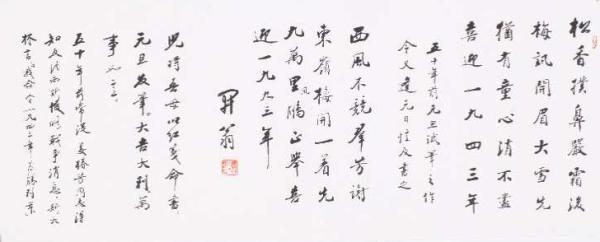 松香撲鼻嚴霜後
梅訊開眉大雪先
猶有童心清不盡
喜迎一九四三年
五十年前元旦試筆之作
今又逢元日書之
西風不競羣芳謝
東嶺梅開一着先
九萬里風鵬正舉喜
迎一九九三年
翁
兒時母以紅箋命書
元旦發筆大吉大利萬
事如意
五十年前常從姜椿芳同志得
知反法西斯戰爭消息
一九四三年為勝利年